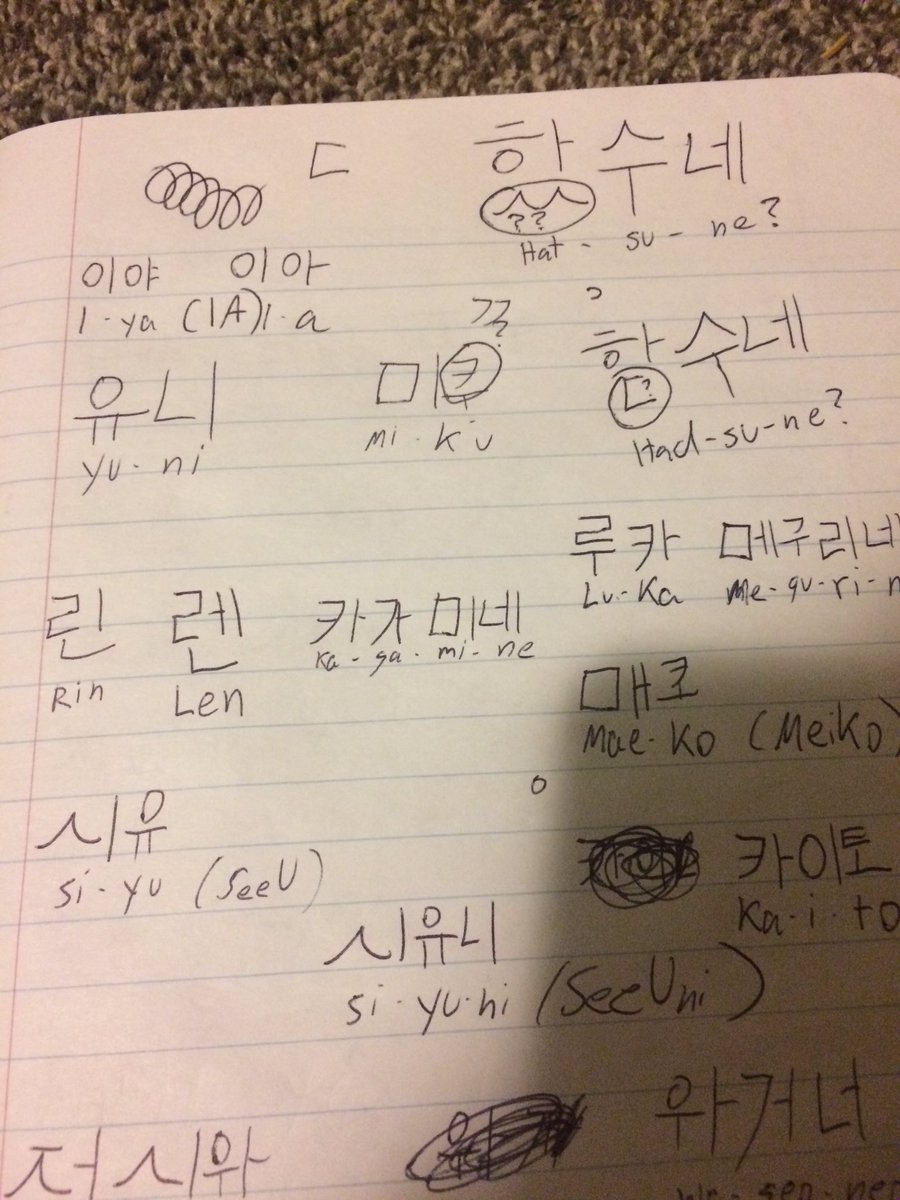 ㄷ 핬수네
??
Hat - su - ne?
이야 이아
I-ya (IA) I-a
핟수네
?
Had-su-ne?
유니
yu-ni
미쿠
mi-ku
루카 메구리네
Lu-Ka Me-gu-ri-n
린 렌 카가미네
Rin Len Ka-ga-mi-ne
매코
Mae-Ko (Meiko)
시유
si-yu (SeeU)
카이토
Ka-i-to
시유니
si-yu-ni (SeeUni)
저시와